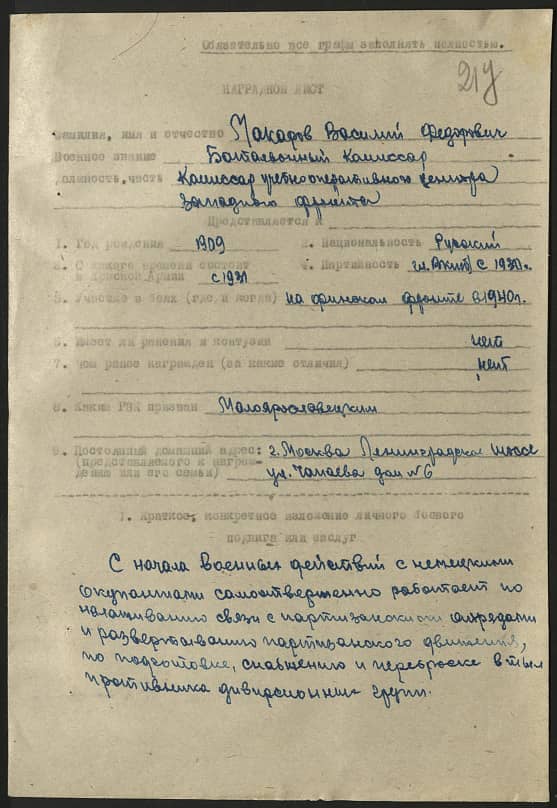 Обязательно все графы заполнять полностью.
НАГРАДНОЙ ЛИСТ
Фамилия, имя и отчество Макаров Василий Федорович
Военное звание Батальонный Комиссар
Должность, часть Комиссар учебно оперативного центра
Западного фронта
Представляется к
1. Год рождения 1909 2. Национальность Русский
3. С какого времени состоит 4. Партийность чл. ВКП(б) с 1931г.
в Красной Армии с 1931
5. Участие в боях (где и когда) на финском фронте в 1940г.
6. Имеет ли ранения и контузии нет
7. Чем ранее награжден (за какие отличия) нет
8. Каким РВК призван Малоярославецким
9. Постоянный домашний адрес: г. Москва Ленинградское шоссе
(представляемого к награж-
дению или его семьи) ул. Чапаева дом №6
1. Краткое, конкретное изложение личного боевого
подвига или заслуг
С начала военных действий с немецкими
окупантами самоотверженно работает по
налаживанию связи с партизанскими отрядами
и развертыванию партизанского движения,
по подготовке, снабжению и переброске в тыл
противника дивирсионных групп.